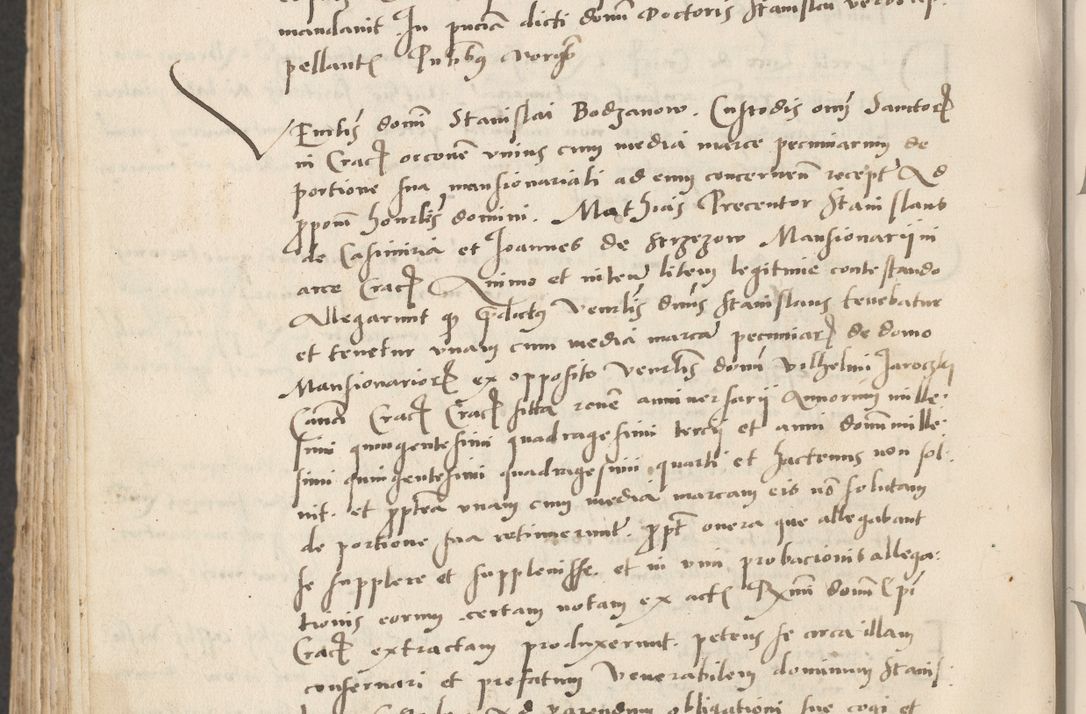 mandavit In pnciã dicti domi Doctoris Stanislai
pellantꝭ Pntibus
Enrlis domi Stanislai Bodzanow. Custodis omĩ Sanctorꝝ
in Cracꝫ occone unius cum media marce pecuniarum de
portione sua mansionariali ad eum concernen recept Ad
ppom honrlis domini. Mathias Precentor Stanislaus
de Casimiria et Joannes de Strzezow Mansionarii in
arce Cracꝫ Animo et inten litem legitime contestando
Allegarunt qꝫ pdictus Venrlis dnus Stanislaus tenebatur
et tenetur unam cum media marcã pecuniarꝫ de domo
Mansionariorꝫ ex opposito Venrlis domi Vilhelmi Jaroczky
Canci Cracꝫ Cracꝫ sitta rone anniversarii Annorum mille-
simi quingentesimi quadragesimi tercii et anni domi mille-
simi quingentesimi quadragesimi quarti et hactenus non sol-
vit. et pptea unam cum media marcam eis nõ solutam
de portione sua retinuerunt ppt onera que allegabant
se supplere et supplevisse. et in vim probacionis allega-
tionis eorum certam notam ex actꝭ Rxmi domi Epi
Cracꝫ extractam produxerunt petens se circa illam
conservari et prefatum Venerabilem dominum Stanis-
Ad parendum obligationi sue cogi et